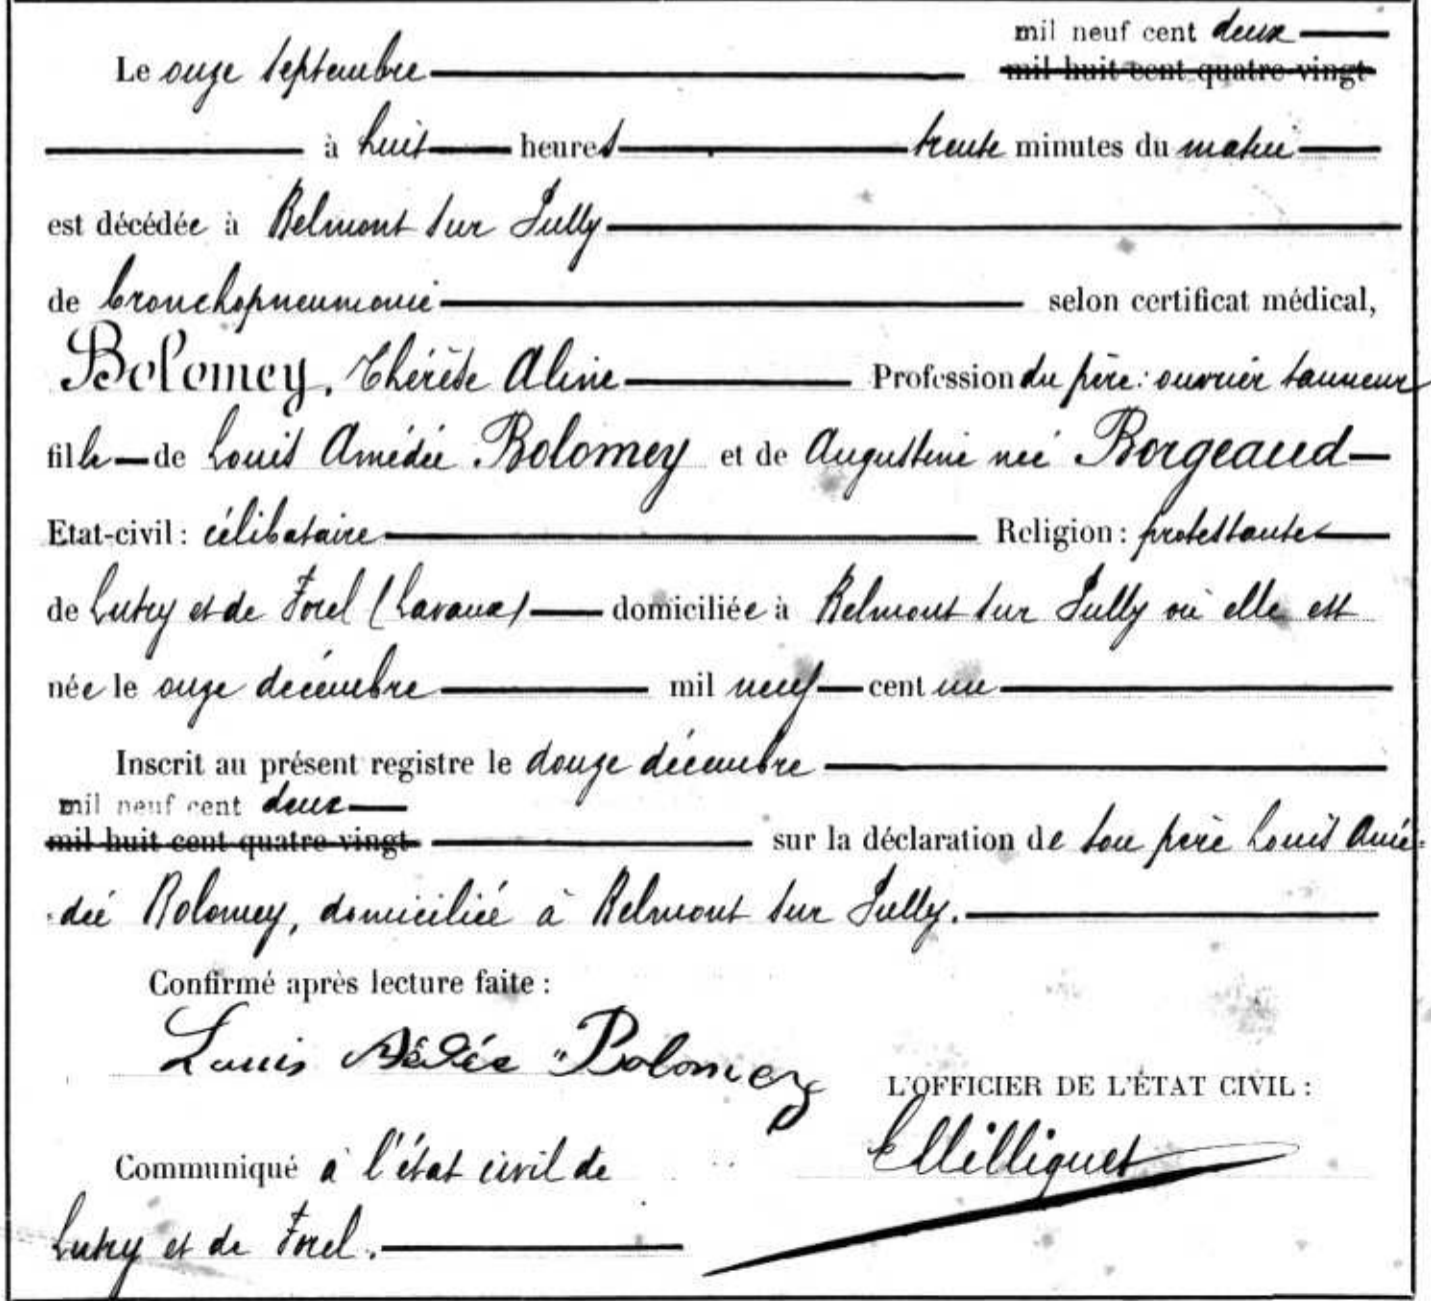 mil neuf cent deux
Le onze septembre mil huit cent quatre-vingt
à huit heures trente minutes du matin
est décédée à Belmont sur Lully
de bronchopneumonie selon certificat médical,
Bolomey, Thérèse Aline Profession du père: ouvrier tanneur
fille de Louis Amédée Bolomey et de Augustine née Borgeaud
Etat-civil: célibataire Religion: protestante
de Lutry et de Forel (Lavaux) domiciliée à Belmont sur Lully où elle est
née le onze décembre mil neuf cent un
Inscrit au présent registre le douze décembre
mil neuf cent deux
mil huit cent quatre-vingt sur la déclaration de son père Louis Amé-
dée Bolomey, domicilié à Belmont sur Lully.
Confirmé après lecture faite:
Louis Bolomey
L'OFFICIER DE L'ÉTAT CIVIL:
Communiqué à l'état civil de EMilliquet
Lutry et de Forel.